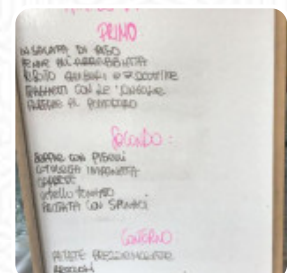 PRIMO
INSALATA DI RISO
PENNE ALL'ARRABBIATA
RISOTO GAMBERI E ZUCCHINE
SPAGHETTI CON LE VONGOLE
AL POMODORO
SECONDO:
CON PISELLI
COTOLETTA IMPANATA
VITELLO TONNATO
FRITTATA CON SPINACI
CONTORNO
PATATE